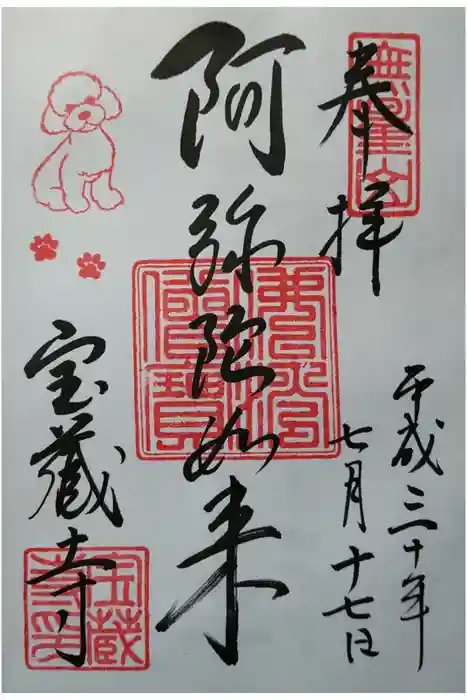 奉拝
無量山
平成三十年
七月十七日
阿弥陀如来
佛法僧寶
宝蔵寺